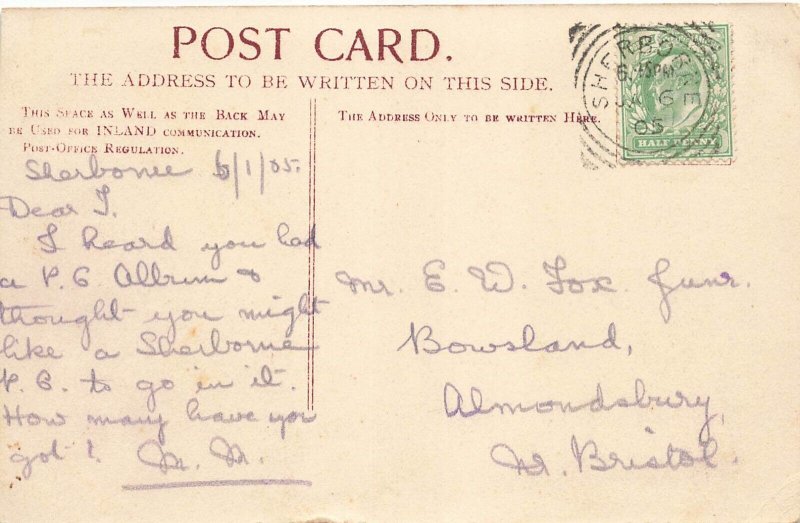 POST CARD.
THE ADDRESS TO BE WRITTEN ON THIS SIDE.
THIS SPACE AS WELL AS THE BACK MAY
BE USED FOR INLAND COMMUNICATION.
POST-OFFICE REGULATION.
THE ADDRESS ONLY TO BE WRITTEN HERE.
SHERBORNE
JA 6
05
HALF PENNY
Sherborne 6/1/05.
Dear J.
I heard you had
a P.C. Album &
thought you might
like a Sherborne
P.C. to go in it.
How many have you
got? M. M.
Mr. E. W. Fox Junr.
Bowsland,
Almondsbury,
Nr. Bristol.